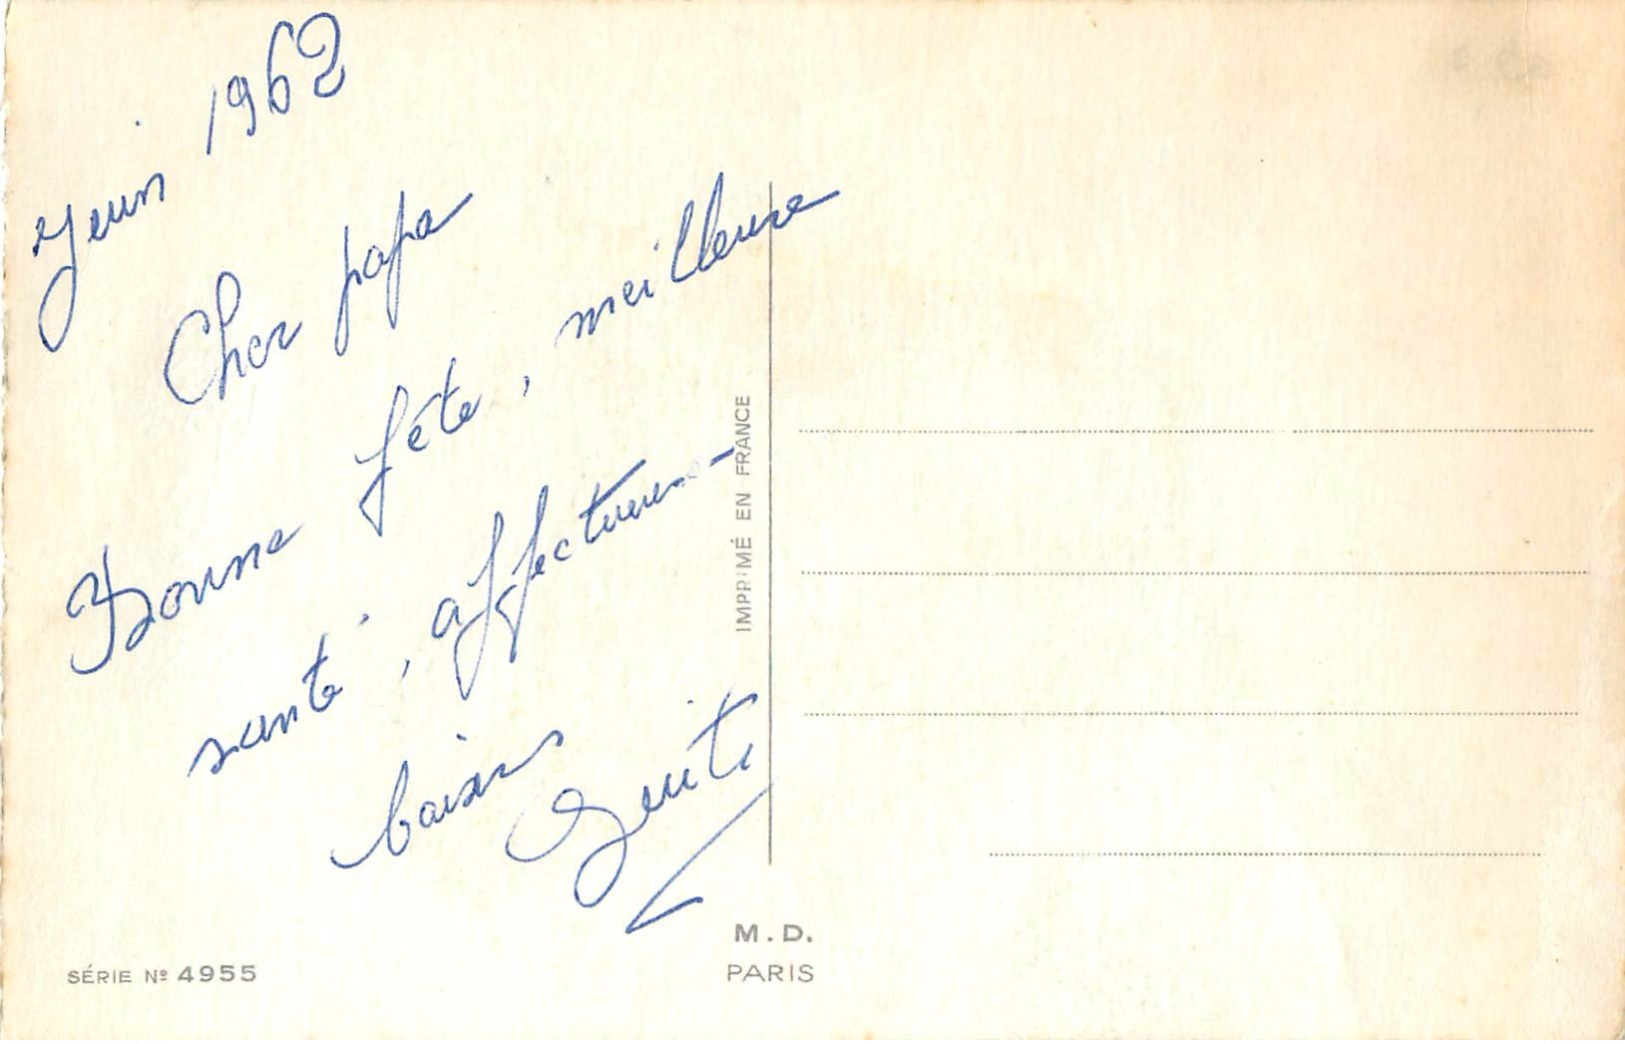 Juin 1962
Cher papa
Bonne fête, meilleure
santé, affectueux
baisers
IMPRIMÉ EN FRANCE
M. D.
PARIS
SÉRIE Nº 4955